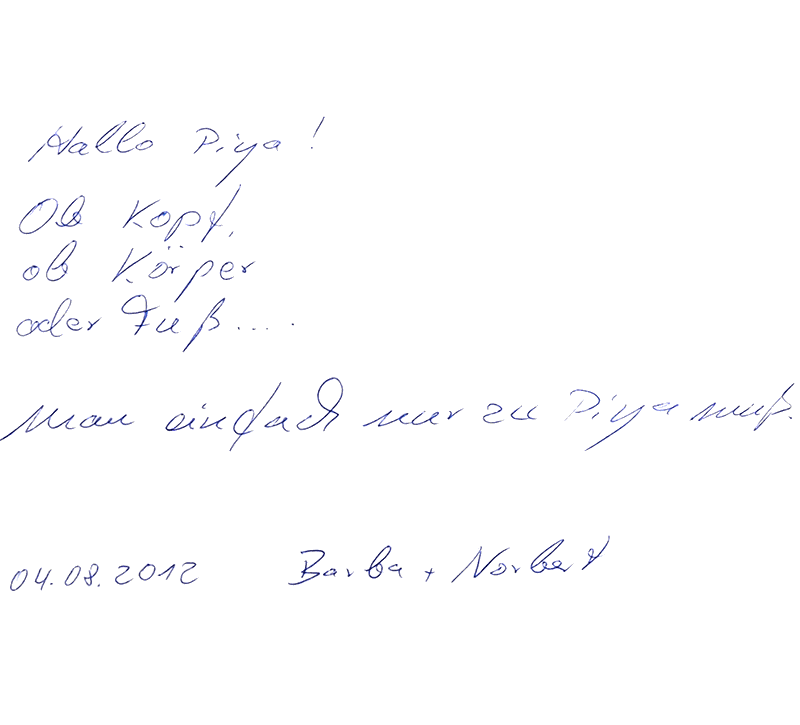 Hallo Piya!
Ob Kopf,
ob Körper
oder Fuß....
man einfach nur zu Piya muß.
04.08.2012 Barba + Norbert